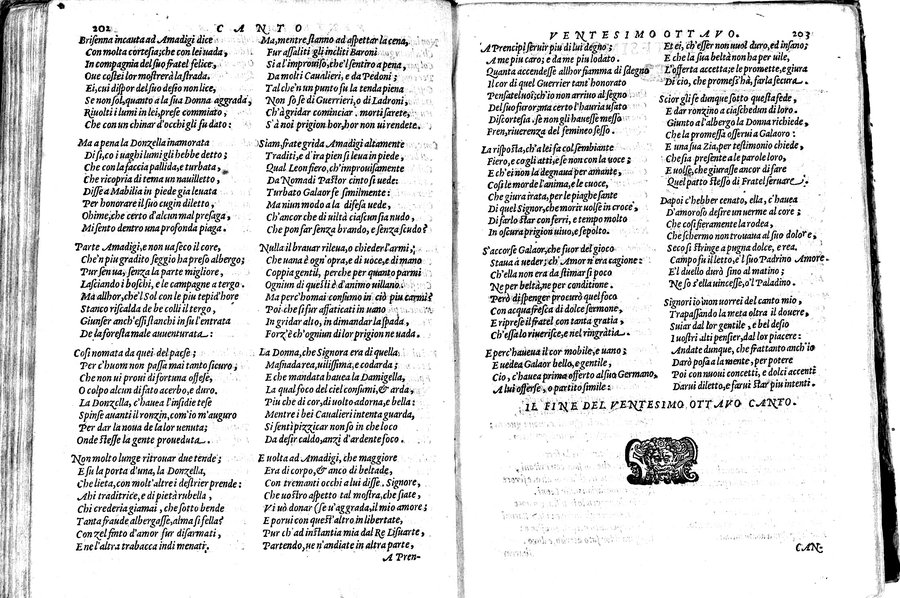 202 CANTO
Brisenna incauta ad Amadigi dice
Con molta cortesia; che con lei vada,
In compagnia del suo fratel felice,
Oue costei lor mostrerà la strada.
Ei, cui dispor del suo desio non lice,
Se non sol, quanto a la sua Donna aggrada,
Riuolti i lumi in lei, prese commiato,
Che con un chinar d'occhi gli fu dato:
Ma a pena la Donzella inamorata
Disi, co i uaghi lumi gli hebbe detto;
Che con la faccia pallida, e turbata,
Che ricopria di tema un nauilletto,
Disse a Mabilia in piede gia leuata
Per honorare il suo cugin diletto,
Ohime, che certo d'alcun mal presaga,
Mi sento dentro una profonda piaga.
Parte Amadigi, e non ua seco il core,
Che'n piu gradito seggio ha preso albergo;
Pur sen ua, senza la parte migliore,
Lasciando i boschi, e le campagne a tergo.
Ma allhor, che'l Sol con le piu tepid'hore
Stanco riscalda de be colli il tergo,
Giunser anch'essi stanchi in su l'entrata
De la foresta male auuenturata:
Così nomata da quei del paese;
Per c'huom non passa mai tanto sicuro;
Che non ui proni di fortuna offese,
O colpo alcun di fato acerbo, e duro.
La Donzella, c'hauea l'insidie tese
Spinse auanti il ronzin, com'io m'auguro
Per dar la noua de la lor venuta;
Onde stesse la gente proueduta.
Non molto lunge ritrouar due tende;
E su la porta d'una, la Donzella,
Che lieta, con molt'altre i destrier prende:
Ahi traditrice, e di pietà rubella,
Chi crederia giamai, che sotto bende
Tanta fraude albergasse, alma si fella?
Con zel finto d'amor fur disarmati,
E ne l'altra trabacca indi menati.
Ma, mentre stanno ad aspettar la cena,
Fur assaliti gli incliti Baroni
Si a l'improuiso, che'l sentiro a pena,
Da molti Caualieri, e da Pedoni;
Tal che'n un punto fu la tenda piena
Non so se di Guerrieri, o di Ladroni,
Ch'à gridar cominciar. morti sarete,
S'à noi prigion hor, hor non ui rendete.
Siam, frate grida Amadigi altamente
Traditi, e d'ira pien si leua in piede,
Qual Leon fiero, ch'improuisamente
Da Nomadi Pastor cinto si uede:
Turbato Galaor fe similmente:
Ma niun modo a la difesa uede,
Ch'ancor che di uiltà ciascun sia nudo,
Che pon far senza brando, e senza scudo?
Nulla il brauar rileua, o chieder l'armi;
Che uana è ogn'opra, e di uoce, e di mano
Coppia gentil, perche per quanto parmi
Ogniun di questi è d'animo uillano.
Ma perc'homai consumo in ciò piu carmi?
Poi che si fur affaticati in uano
In gridar alto, in dimandar la spada,
Forz'è ch'ogniun di lor prigion ne vada.
La Donna, che Signora era di quella
Masnada rea, uilissima, e codarda;
E che mandata hauea la Damigella,
La qual foco del ciel consumi, & arda,
Piu che di cor, di uolto adorna, e bella:
Mentre i bei Caualieri intenta guarda,
Si sentì pizzicar non so in che loco
Da desir caldo, anzi d'ardente foco.
E uolta ad Amadigi, che maggiore
Era di corpo, & anco di beltade,
Con tremanti occhi a lui disse. Signore,
Che uostro aspetto tal mostra, che siate,
Vi uò donar (se u'aggrada, il mio amore;
E porui con quest'altro in libertate,
Pur ch'ad instantia mia dal Re Lisuarte,
Partendo, ue n'andiate in altra parte,
A Pren-
VENTESIMO OTTAVO. 203
A Prencipl seruir piu di lui degno;
A me piu caro; e da me piu lodato.
Quanta accendesse allhor fiamma di sdegno
Il cor di quel Guerrier tant'honorato
Pensatel uoi; ch'io non arriuo al segno
Del suo furor, ma certo l'hauria usato
Discortesia. se non gli hauesse messo
Fren, riuerenza del femineo sesso.
La risposta, ch'a lei fa col sembiante
Fiero, e cogli atti, e se non con la voce;
E ch'ei non la degna ua per amante,
Così le morde l'anima, e le cuoce,
Che giura irata, per le piaghe sante
Di quel Signor, che morir uolse in croce,
Di farlo star con ferri, e tempo molto
In oscura prigion uiuo, e sepolto.
S'accorse Galaor, che fuor del gioco
Staua a ueder; ch'Amor n'era cagione:
Ch'ella non era da stimar sì poco
Ne per beltà, ne per conditione.
Però dispenger procurò quel foco
Con acqua fresca di dolce sermone,
E riprese il fratel con tanta gratia,
Ch'esso lo riuerisce, e nel ringràtia.
E perc'hauena il cor mobile, e uano;
E uedea Galaor bello, e gentile,
Cio, c'hauea prima offerto al suo Germano,
A lui offerse, o partito simile:
Et ei, ch'esser non uuol duro, ed insano;
E che la sua beltà non ha per uile,
L'offerta accetta; e le promette, e giura
Di cio, che promesi'hà, farla secura.
Scior gli fe dunque sotto questa fede,
E dar ronzino a ciaschedun di loro.
Giunto a l'albergo la Donna richiede,
Che la promessa osserui a Galaoro:
E una sua Zia, per testimonio chiede,
Che sia presente a le parole loro,
E uolse, che giurasse ancor di fare
Quel patto stesso di Fratel seruare.
Dapoi c'hebber cenato, ella, c'hauea
D'amoroso desire un uerme al core;
Che così fieramente la rodea,
Che schermo non trouaua al suo dolore,
Seco si stringe a pugna dolce, e rea.
Campo fu il letto, e'l suo Padrino Amore.
E'l duello durò sino al matino;
Ne so s'ella uincesse, o'l Paladino.
Signori io non uorrei del canto mio,
Trapassando la meta oltra il douere,
Suiar dal lor gentile, e bel desio
I uostri alti pensier, dal lor piacere:
Andate dunque, che frattanto anch'io
Darò posa a la mente, per potere
Poi con nuoui concetti, e dolci accenti
Darui diletto, e farui star piu intenti.
IL FINE DEL VENTESIMO OTTAVO CANTO.
CAN-